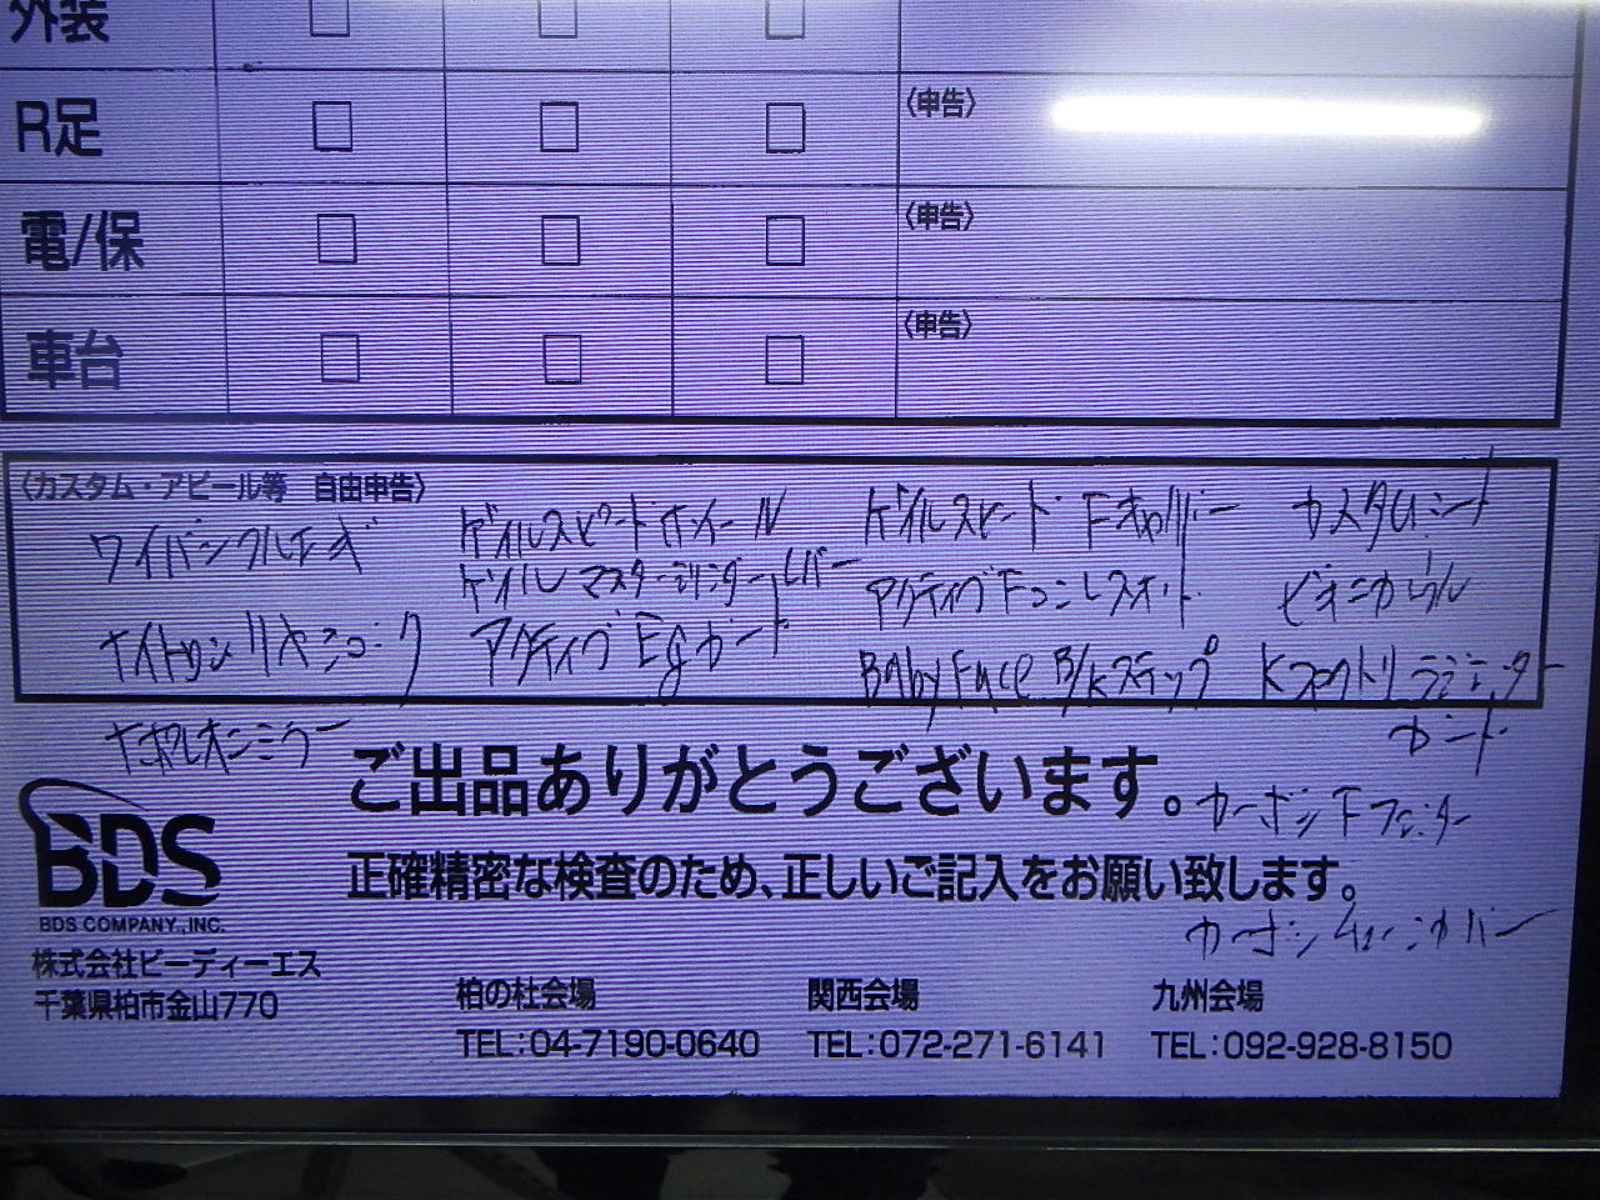 外装
R足 〈申告〉
電/保 〈申告〉
車台 〈申告〉
〈カスタム・アピール等 自由申告〉
ワイバンフルエキ ゲイルスピードホイール ゲイルスピード Fキャリパー カスタムシート
ゲイルマスターシリンダー レバー アクティブFフェンレスキット
ナイトロンリヤショック アクティブ Egガード BabyFace B/kステップ Kファクトリーラジエーター
ガード
ナポレオンミラー
ご出品ありがとうございます。
カーボンFフェンダー
正確精密な検査のため、正しいご記入をお願い致します。
カーボンチェーンカバー
BDS
BDS COMPANY.,INC.
株式会社ビーディーエス
千葉県柏市金山770
柏の杜会場 関西会場 九州会場
TEL:04-7190-0640 TEL:072-271-6141 TEL:092-928-8150